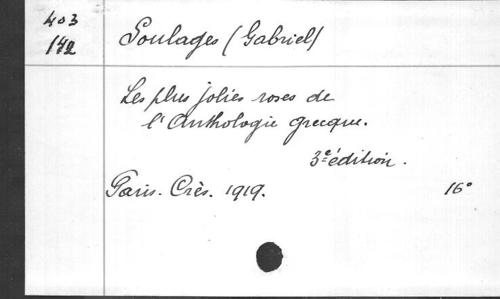 403
142
Soulages (Gabriel)
Les plus jolies roses de
l'Anthologie grecque.
3e édition.
Paris. Crès. 1919. 16°